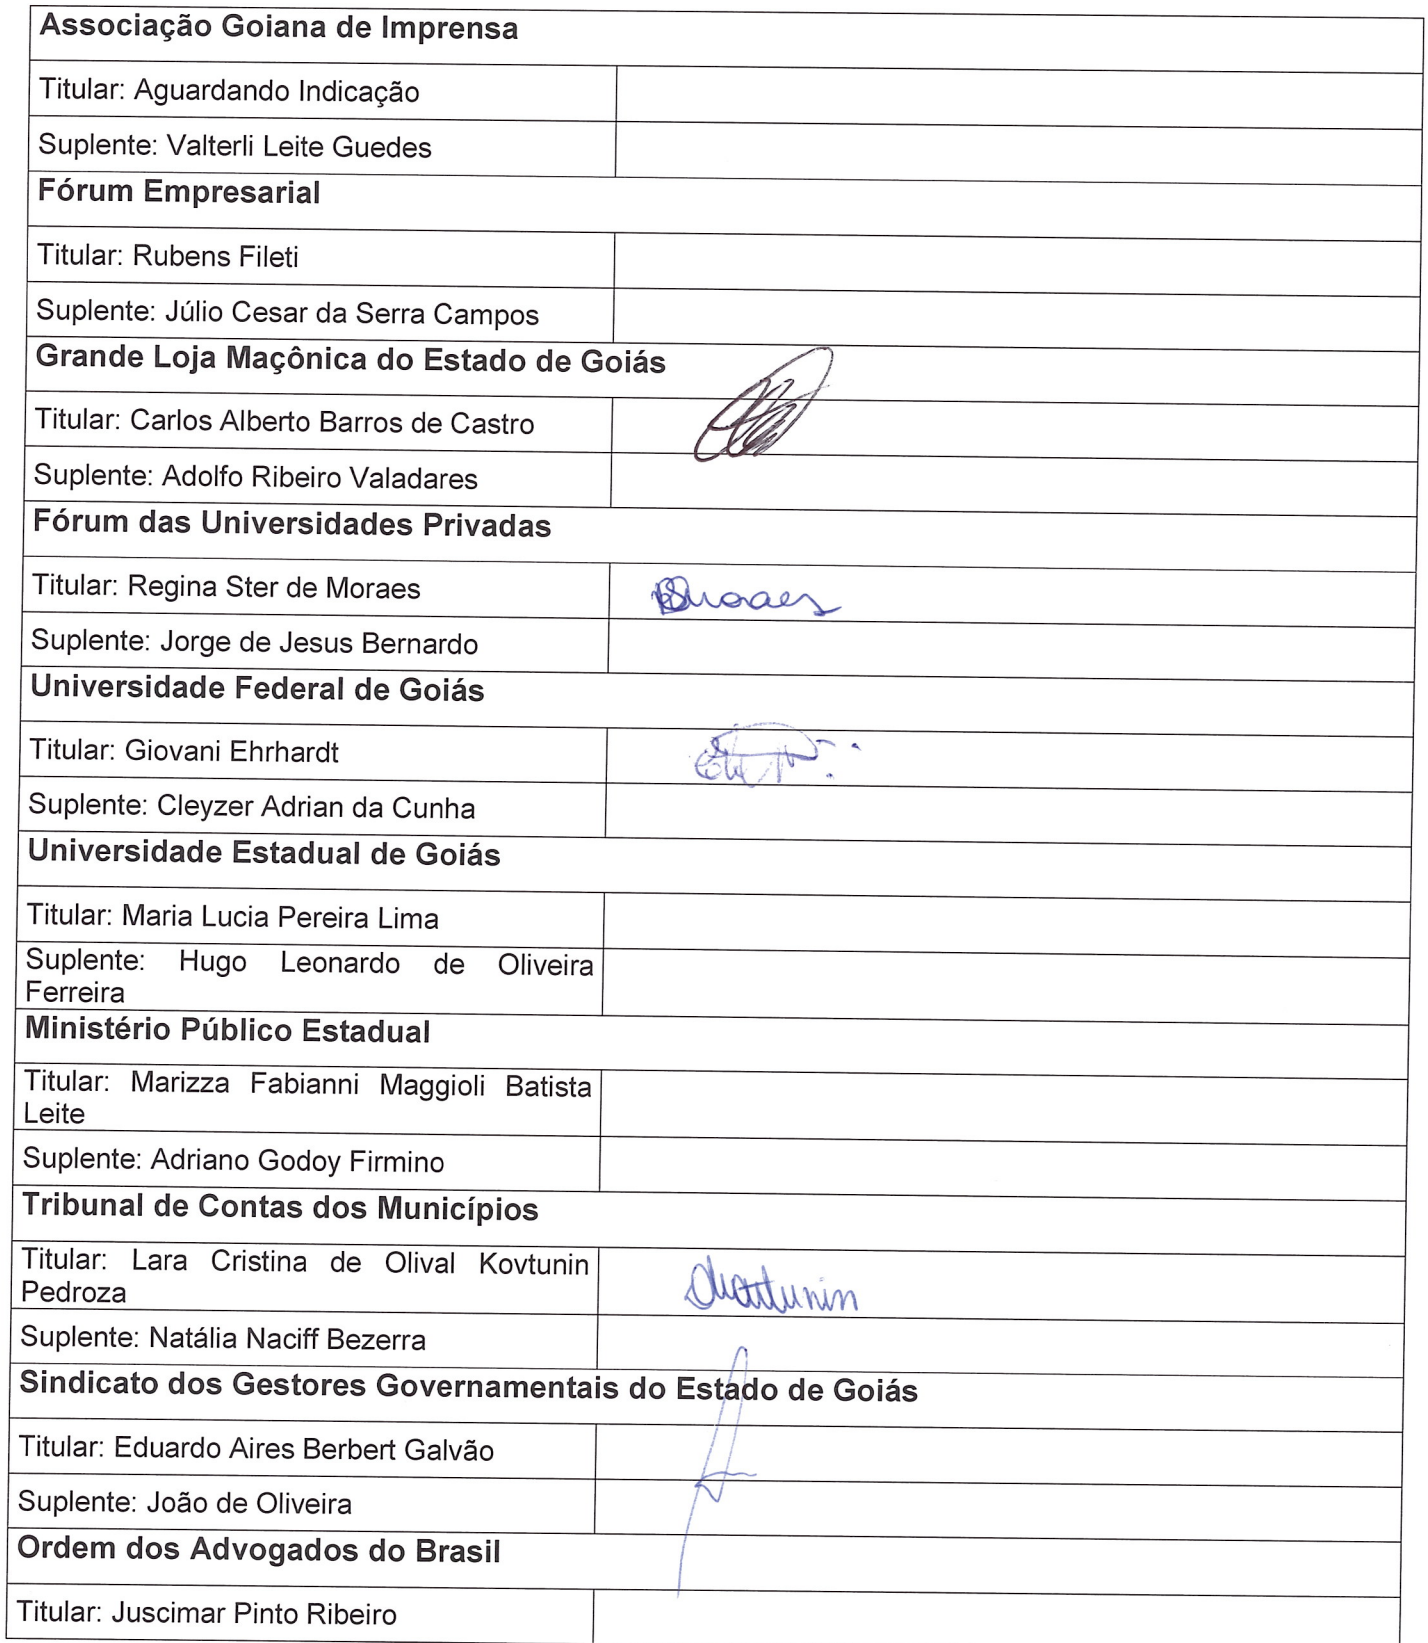 Associação Goiana de Imprensa
Titular: Aguardando Indicação
Suplente: Valterli Leite Guedes
Fórum Empresarial
Titular: Rubens Fileti
Suplente: Júlio Cesar da Serra Campos
Grande Loja Maçônica do Estado de Goiás
Titular: Carlos Alberto Barros de Castro
Suplente: Adolfo Ribeiro Valadares
Fórum das Universidades Privadas
Titular: Regina Ster de Moraes
Suplente: Jorge de Jesus Bernardo
Universidade Federal de Goiás
Titular: Giovani Ehrhardt
Suplente: Cleyzer Adrian da Cunha
Universidade Estadual de Goiás
Titular: Maria Lucia Pereira Lima
Suplente: Hugo Leonardo de Oliveira
Ferreira
Ministério Público Estadual
Titular: Marizza Fabianni Maggioli Batista
Leite
Suplente: Adriano Godoy Firmino
Tribunal de Contas dos Municípios
Titular: Lara Cristina de Olival Kovtunin
Pedroza
Suplente: Natália Naciff Bezerra
Sindicato dos Gestores Governamentais do Estado de Goiás
Titular: Eduardo Aires Berbert Galvão
Suplente: João de Oliveira
Ordem dos Advogados do Brasil
Titular: Juscimar Pinto Ribeiro